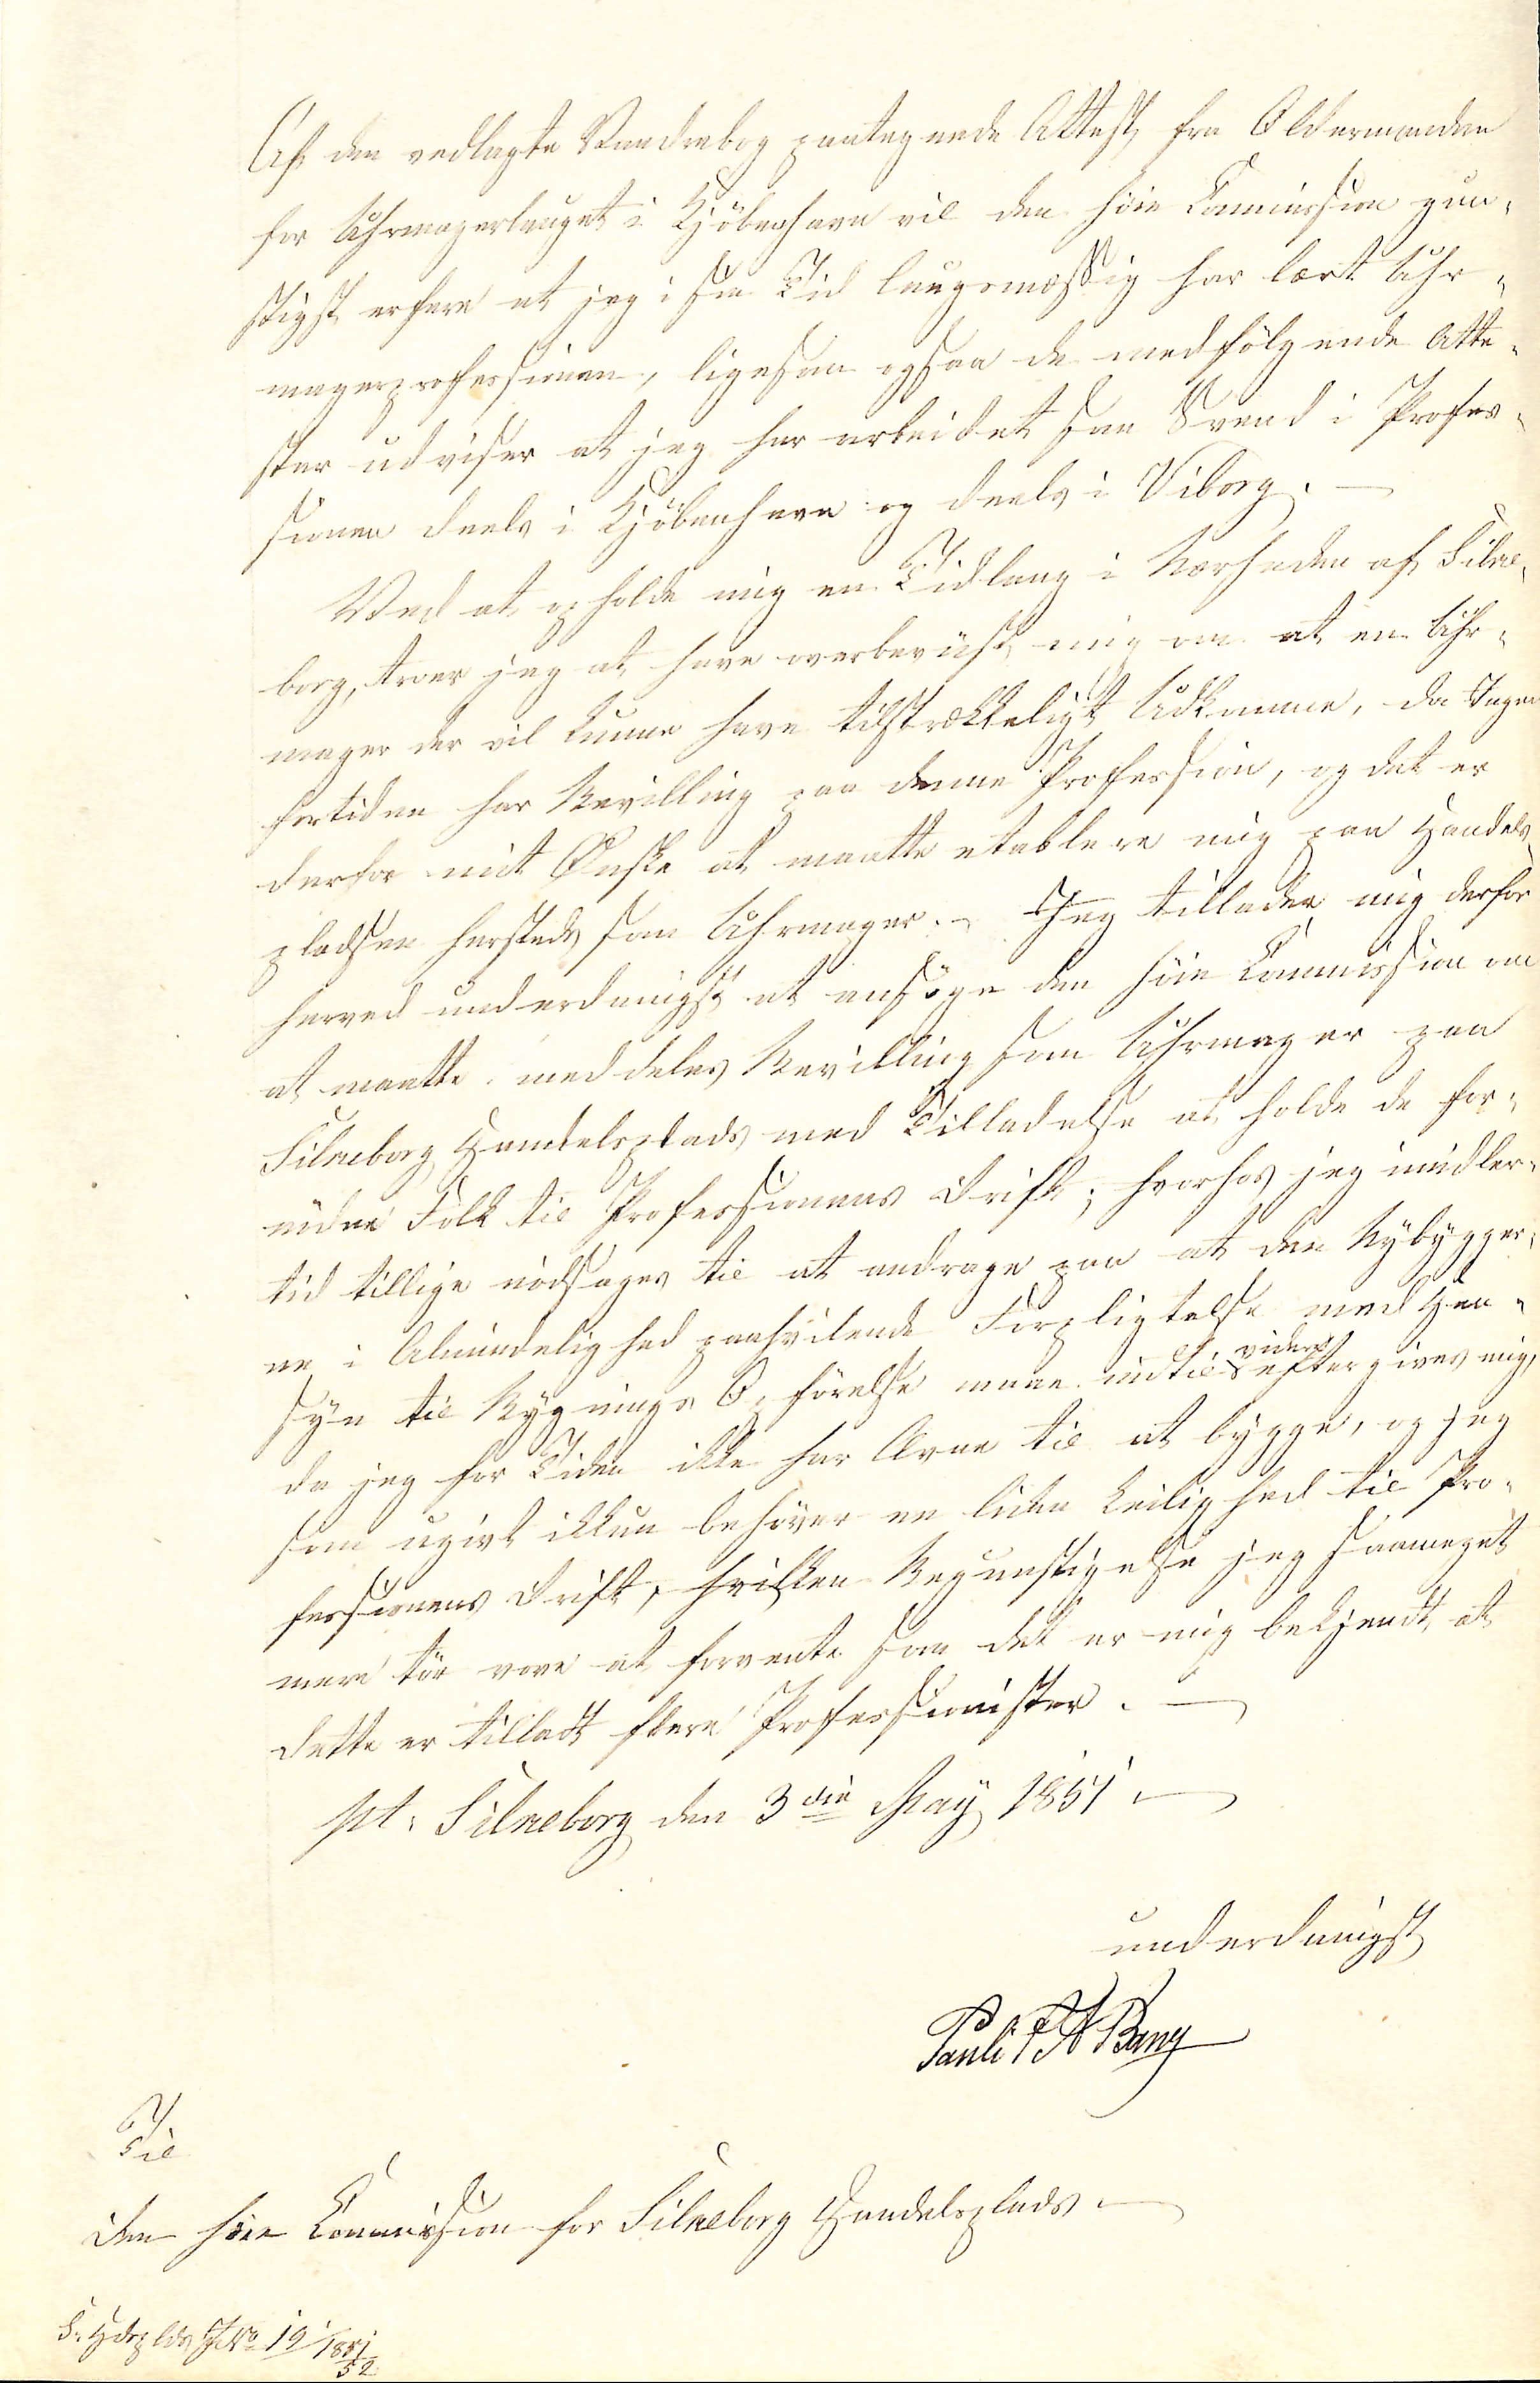 Af den vedlagte Vandrebog paategnede Attest fra Oldermanden
for Uhrmagerlauget i Kjöbenhavn vil den höie Commission gun-
stigst erfare at jeg i sin Tid laugsmæssig har lært Uhr-
magerprofessionen, ligesom ogsaa de medfölgende Atte-
ster udviser at jeg har arbeidet som Svend i Profes-
sionen deels i Kjöbenhavn og deels i Viborg. —
Ved at opholde mig en Tidlang i Nærheden af Silke-
borg, troer jeg at have overbeviist mig om at en Uhr-
mager der vil kunne have tilstrækkeligt Udkomme, da Ingen
fortiden har Bevilling paa denne Profession, og det er
derfor mit Önske at maatte etablere mig paa Handels-
pladsen hersteds som Uhrmager. – Jeg tillader mig derfor
herved underdanigst at ansöge den höie Commission om
at maatte meddeles Bevilling som Uhrmager paa
Silkeborg Handelsplads med Tilladelse at holde de for-
nödne Folk til Professionens Drift; hvorhos jeg imidler-
tid tillige nödsages til at andrage paa at den Nybygger-
ne i Almindelighed paahvilende Forpligtelse med Hen-
syn til Bygnings Opförelse maae indtil videre eftergives mig,
da jeg for Tiden ikke har Ævne til at bygge, og jeg
som ugivt ikkun behöver en liden Leilighed til Pro-
fessionens Drift, hvilken Begunstigelse jeg saameget
mere tör vove at forvente som det er mig bekjendt at
dette er tilladt flere Professionister. —
pt. Silkeborg den 3die May 1851 —
underdanigst
Pauli F A Bang
Til
den höie Commission for Silkeborg Handelsplads —
S. Hdsplds J No 19 1851/52